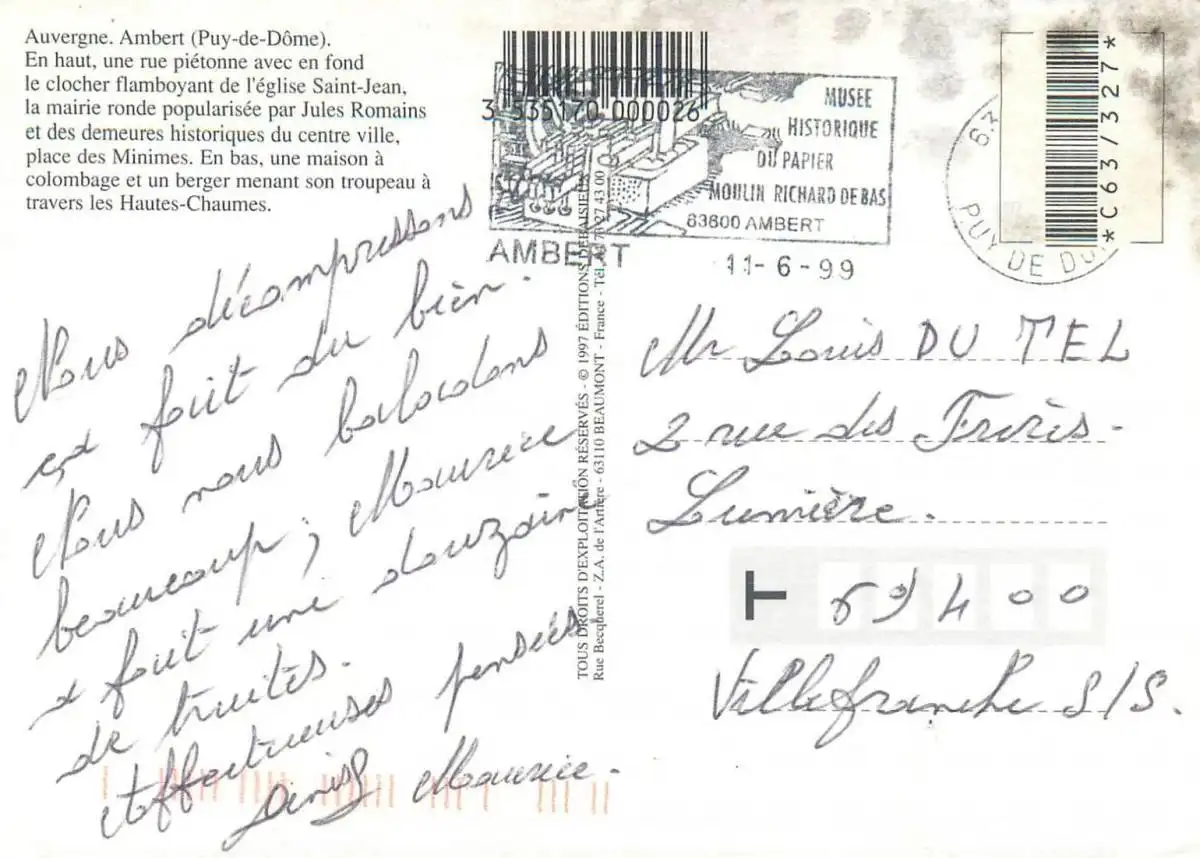 Auvergne. Ambert (Puy-de-Dôme).
En haut, une rue piétonne avec en fond
le clocher flamboyant de l'église Saint-Jean,
la mairie ronde popularisée par Jules Romains
et des demeures historiques du centre ville,
place des Minimes. En bas, une maison à
colombage et un berger menant son troupeau à
travers les Hautes-Chaumes.
3 535170 000026
MUSEE
HISTORIQUE
DU PAPIER
MOULIN RICHARD DE BAS
63600 AMBERT
AMBERT
11-6-99
63
PUY DE DO
*C63/327*
TOUS DROITS D'EXPLOITATION RÉSERVÉS - © 1997 ÉDITIONS DEBAISIEUX
Rue Becquerel - Z.A. de l'Artière - 63110 BEAUMONT - France - Tél. 73 27 43 00
Nous décompressons
et fait du bien.
Nous nous baladons
beaucoup; Maurice
a fait une douzaine
de truites.
Affectueuses pensées.
Maurice.
Mr Louis DU TEL
2 rue des Frères
Lumière.
T 69400
Villefranche S/S.